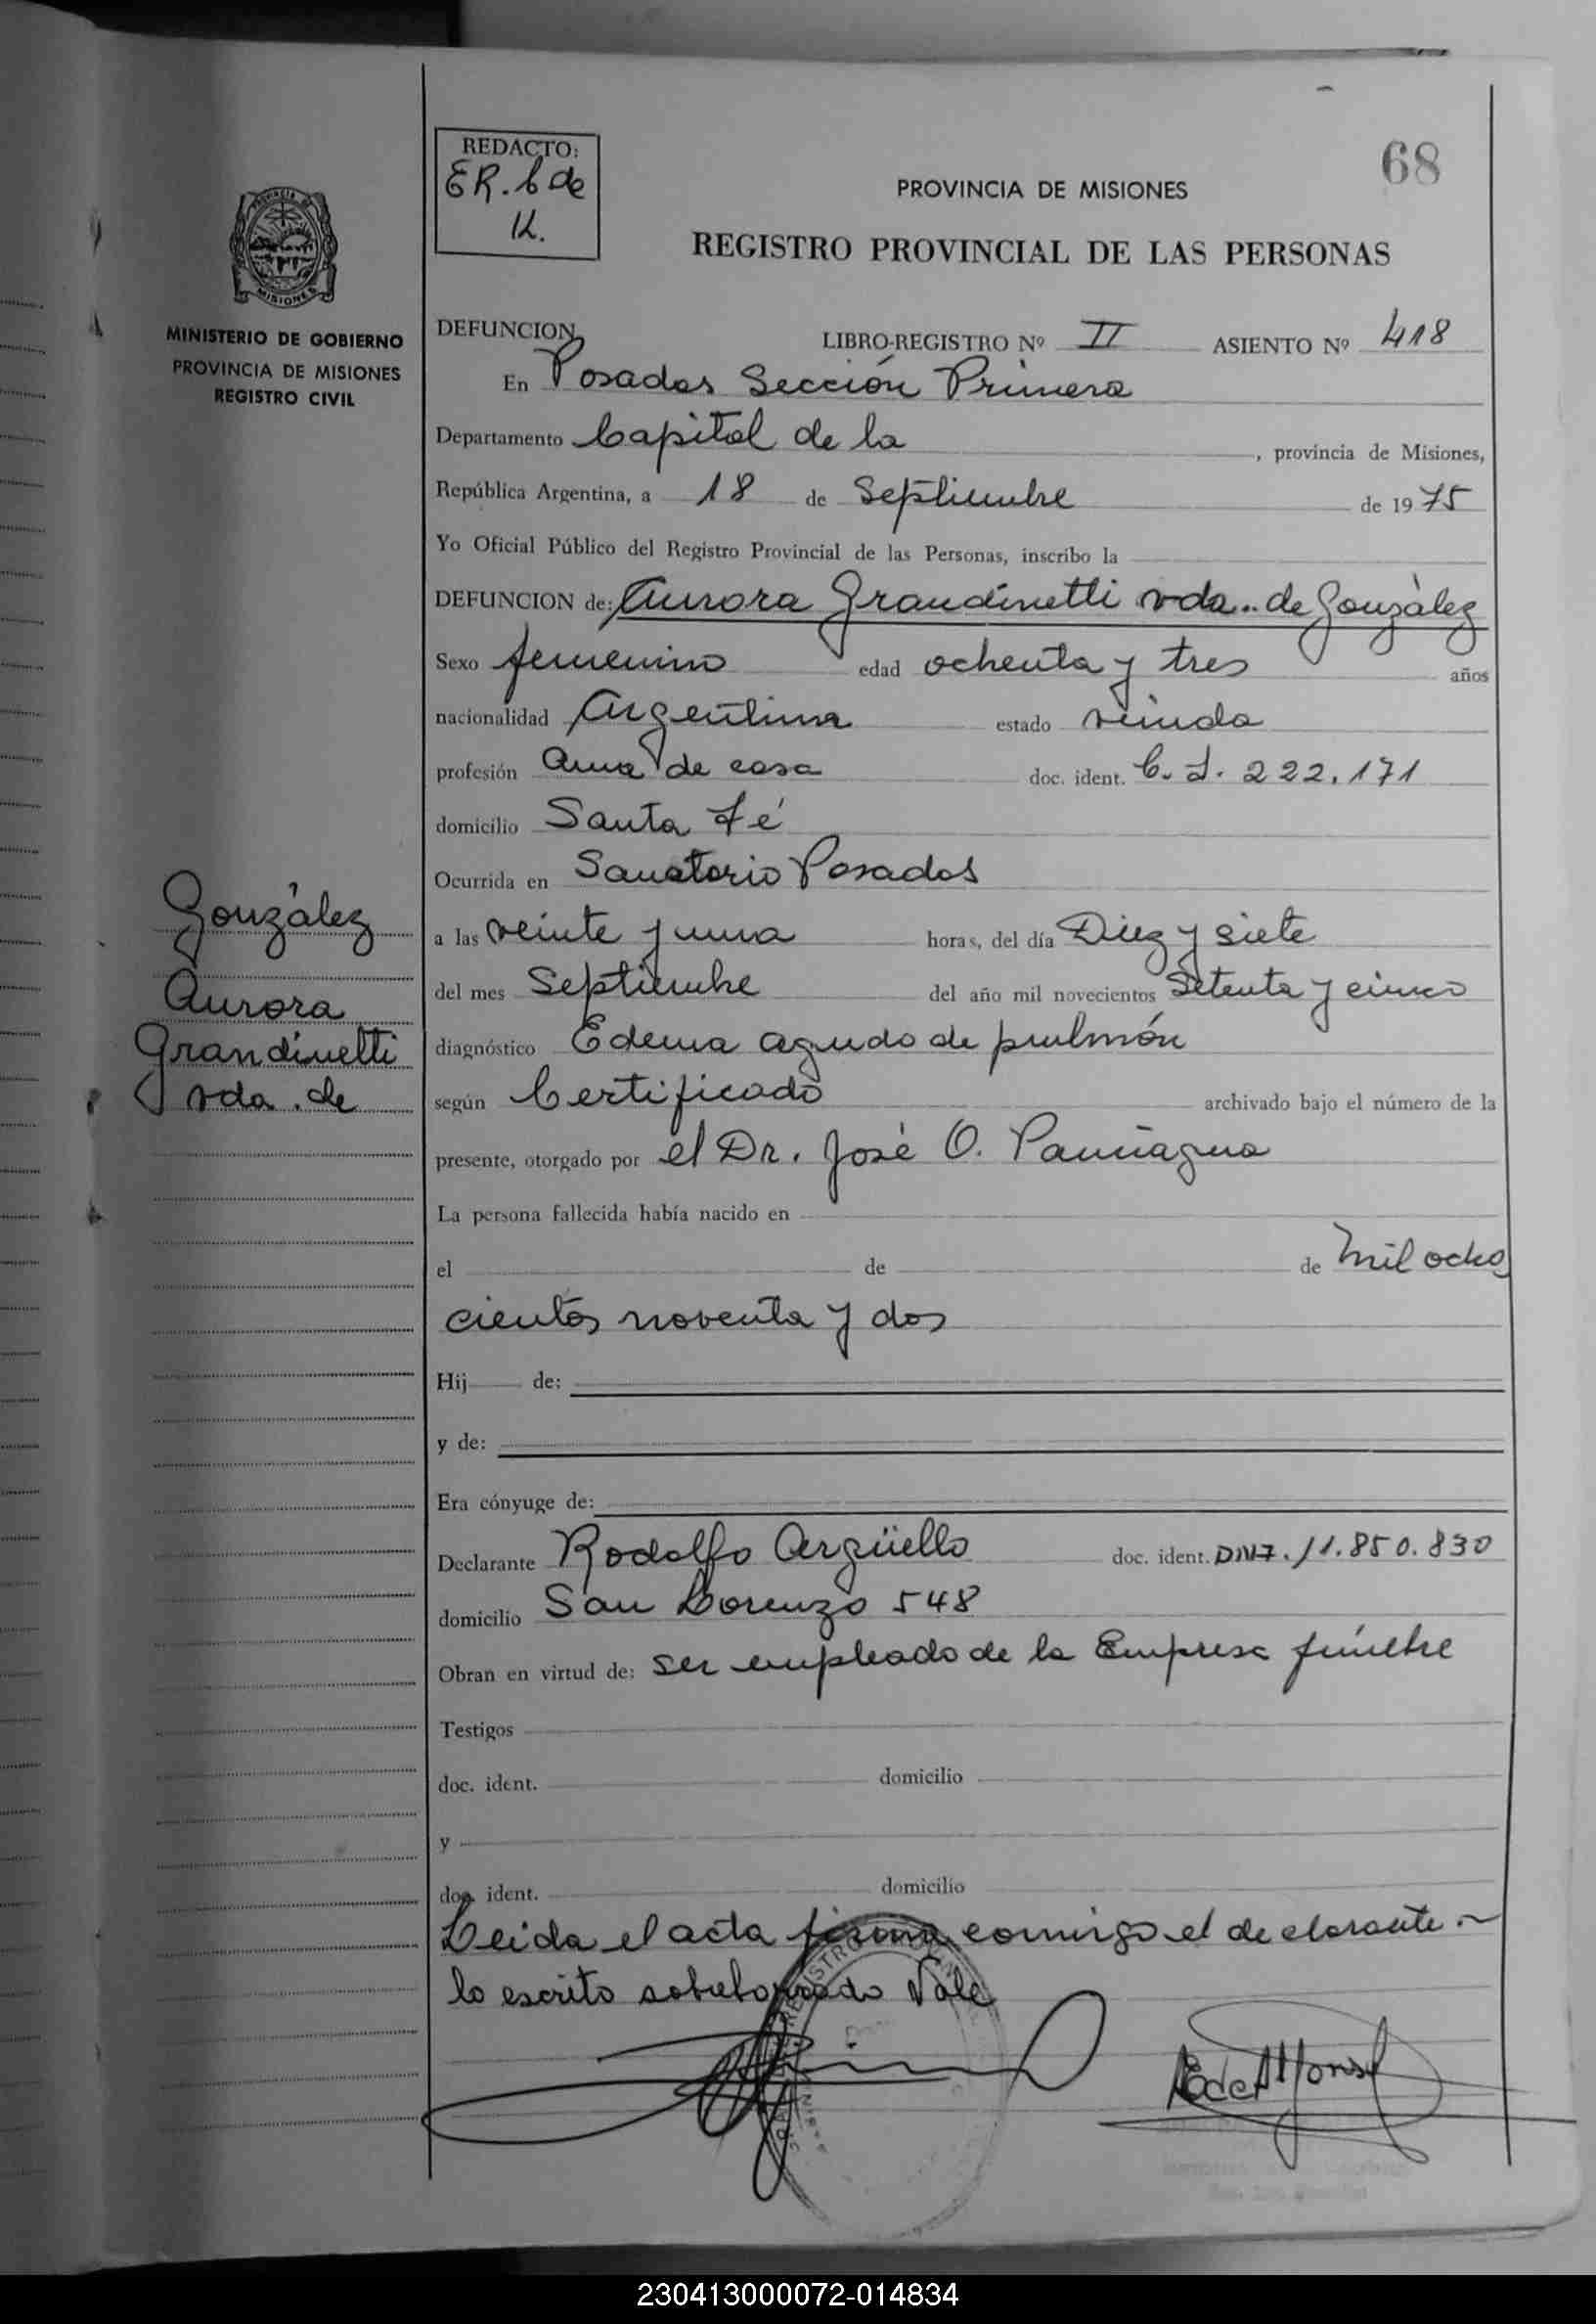 REDACTO:
E.R. C de
K.
68
PROVINCIA DE MISIONES
REGISTRO PROVINCIAL DE LAS PERSONAS
MISIONES
MINISTERIO DE GOBIERNO
PROVINCIA DE MISIONES
REGISTRO CIVIL
DEFUNCION LIBRO-REGISTRO Nº II ASIENTO Nº 418
En Posadas Sección Primera
Departamento Capital de la , provincia de Misiones,
República Argentina, a 18 de Septiembre de 1975
Yo Oficial Público del Registro Provincial de las Personas, inscribo la
DEFUNCION de: Aurora Grandinetti vda. de González
Sexo femenino edad ochenta y tres años
nacionalidad Argentina estado viuda
profesión Ama de casa doc. ident. C. I. 222.171
domicilio Santa Fé
Ocurrida en Sanatorio Posadas
a las veinte y una horas, del día Diez y siete
del mes Septiembre del año mil novecientos Setenta y cinco
diagnóstico Edema agudo de pulmón
según Certificado archivado bajo el número de la
presente, otorgado por el Dr. José O. Paniagua
La persona fallecida había nacido en
el de de Mil ocho
cientos noventa y dos
Hij de:
y de:
Era cónyuge de:
Declarante Rodolfo Argüello doc. ident. DNI. 11.850.830
domicilio San Lorenzo 548
Obran en virtud de: Ser empleado de la Empresa fúnebre
Testigos
doc. ident. domicilio
y
doc. ident. domicilio
Leida el acta firma conmigo el declarante.
lo escrito sobreborrado Vale
González
Aurora
Grandinetti
vda. de
230413000072-014834